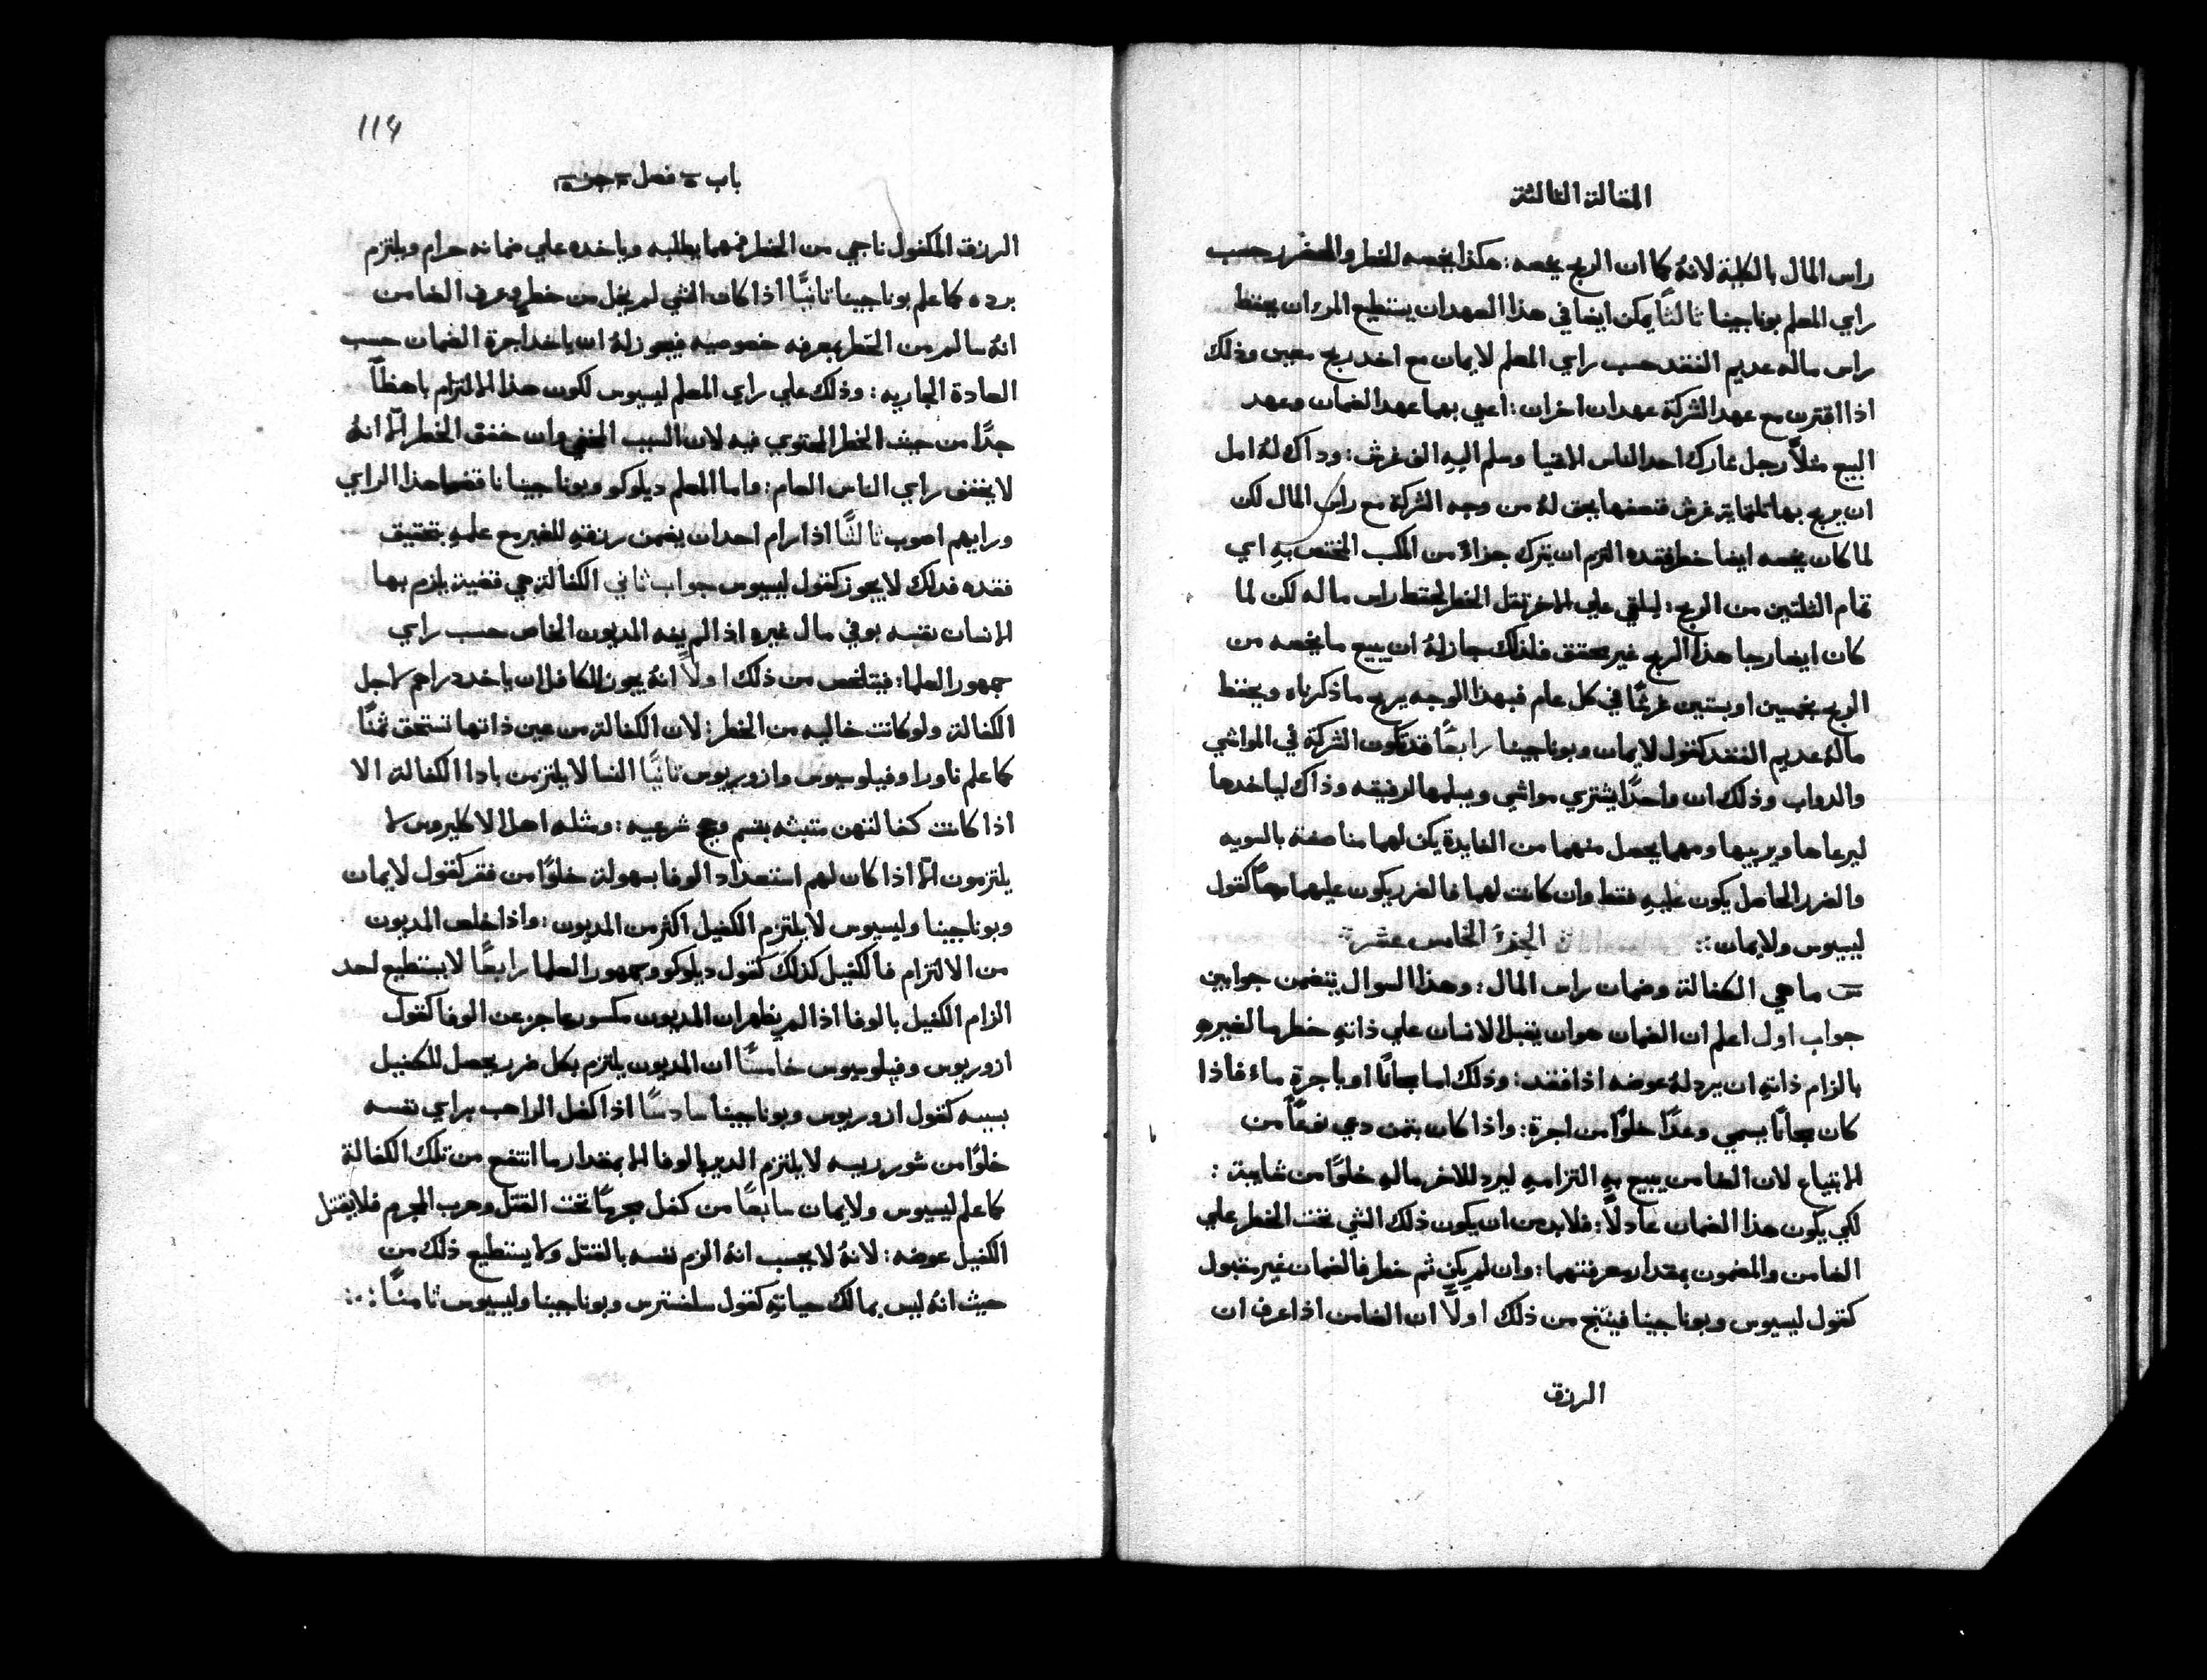 المقالة الثالثة
راس المال بالكلية لانهُ كما ان الربح يخصه: هكذا يخصه الخطر والضرر حسب
راي المعلم بوناجينا ثالثًا يمكن ايضا في هذا العهد ان يستطيع المرء ان يحفظ
راس ماله عديم الفقد حسب راي المعلم لايمان مع اخد ربح معين وذلك
اذا اقترن مع عهد الشركة عهدان اخران: اعني بهما عهد الضمان وعهد
البيع مثلاً رجل شارك احد الناس الاغنيا وسلم اليهِ الف غرش: وداك لهُ امل
ان يربح بها ثلثماية غرش فنصفها يحق لهُ من وجه الشركة مع راس المال لكن
لما كان يخصه ايضا خطر فقده التزم ان يترك جزاءً من المكسب المختص بهِ اي
تمام الثلثين من الربح: ليلقي علي الاخر ثقل الخطر لحفظ راس ماله لكن لما
كان ايضا رجا هذا الربح غير محقق فلذلك جاز لهُ ان يبيع ما يخصه من
الربح بخمسين او بستين غرشًا في كل عام فبهذا الوجه يربح ما ذكرناه ويحفظ
مالهُ عديم الفقد كقول لايمان وبوناجينا رابعًا قد تكون الشركة في المواشي
والدواب وذلك ان واحدًا يشتري مواشي ويسلمها لرفيقه وذاك لياخدها
ليرعاها ويربيها ومهما يحصل منهما من الفايدة يكن لهما مناصفة بالسويه
والضرر الحاصل يكون عليهِ فقط وان كانت لهما فالضرر يكون عليهما معًا كقول
ليسيوس ولايمان ⁘ الجزءُ الخامس عشر
س ما هي الكفالة وضمان راس المال: وهذا السوال يتضمن جوابين
جواب اول اعلم ان الضمان هو ان يقبل الانسان علي ذاتهِ خطر مال غيره
بالزام ذاتهِ ان يرد لهُ عوضه اذا فقد: وذلك اما مجانًا او باجرةٍ ماء فاذا
كان مجانًا يسمي وعدًا خلوًا من اجرة: واذا كان بثمن دعي نوعًا من
الابتياع لان الضامن يبيع بهِ التزامهِ ليرد للاخر مالهِ خلوًا من شايبة:
لكي يكون هذا الضمان عادلاً: فلابد من ان يكون ذلك الشي تحت الخطر علي
الضامن والمضمون بمقدار معرفتهما: وان لم يكن ثم خطر فالضمان غير مقبول
كقول ليسيوس وبوناجينا فينتج من ذلك اولاً ان الضامن اذا عرف ان
الرزق
114
باب فصل جز
الرزق المكفول ناجي من الخطر فمهما يطلبه وياخده علي ضمانه حرام ويلتزم
برده كما علم بوناجينا ثانيًا اذا كان الشي لم يخل من خطر وعرف الضامن
انهُ سالم من الخطر بمعرفه خصوصيه فيجوز لهُ ان ياخد اجرة الضمان حسب
العادة الجاريه: وذلك علي راي المعلم ليسيوس لكون هذا الالتزام باهظًا
جدًا من حيث الخطر المحتوي فيه لان السبب الخفي وان خفف الخطر الا انهُ
لا يخفف راي الناس العام: واما المعلم ديلوكو وبوناجينا ناقضا هذا الراي
ورايهم اصوب ثالثًا اذا رام احد ان يضمن رزقهِ للغير مع علمهِ بتحقيق
فقده فدلك لا يجوز كقول ليسيوس جواب ثاني الكفالة هي قضية يلزم بها
الانسان نفسه بوفي مال غيره اذا لم يفه المديون الخاص حسب راي
جمهور العلما: فيتلخص من ذلك اولاً انهُ يجوز للكافل ان ياخد دراهم لاجل
الكفالة ولو كانت خاليه من الخطر: لان الكفالة من عين ذاتها تستحق ثمنًا
كما علم ناورا وفيلوسيوس وازوريوس ثانيًا النسا لا يلتزمن بادا الكفالة الا
اذا كانت كفالتهن مثبته بقسم وحج شرعيه: ومثله اهل الاكليروس لا
يلتزمون الا اذا كان لهم استعداد الوفا بسهولة خلوًا من فقر كقول لايمان
وبوناجينا وليسيوس لا يلتزم الكفيل اكثر من المديون: واذا خلص المديون
من الالتزام فالكفيل كذلك كقول ديلوكو وجمهور العلما رابعًا لا يستطيع احد
الزام الكفيل بالوفا اذا لم يظهر ان المديون مكسور عاجز عن الوفا كقول
ازوريوس وفيلوسيوس خامسًا ان المديون يلتزم بكل ضرر يحصل للكفيل
بسببه كقول ازوريوس وبوناجينا سادسًا اذا كفل الراهب براي نفسه
خلوًا من شور رييسه لا يلتزم الدير بالوفا الا بمقدار ما انتفع من تلك الكفالة
كما علم ليسيوس ولايمان سابعًا من كفل مجرمًا تحت القتل وهرب المجرم فلا يقتل
الكفيل عوضه: لانهُ لا يحسب انهُ الزم نفسه بالقتل ولا يستطيع ذلك من
حيث انهُ ليس بمالك حياتهِ كقول سلفسترس وبوناجينا وليسيوس ثامنًا ⁘